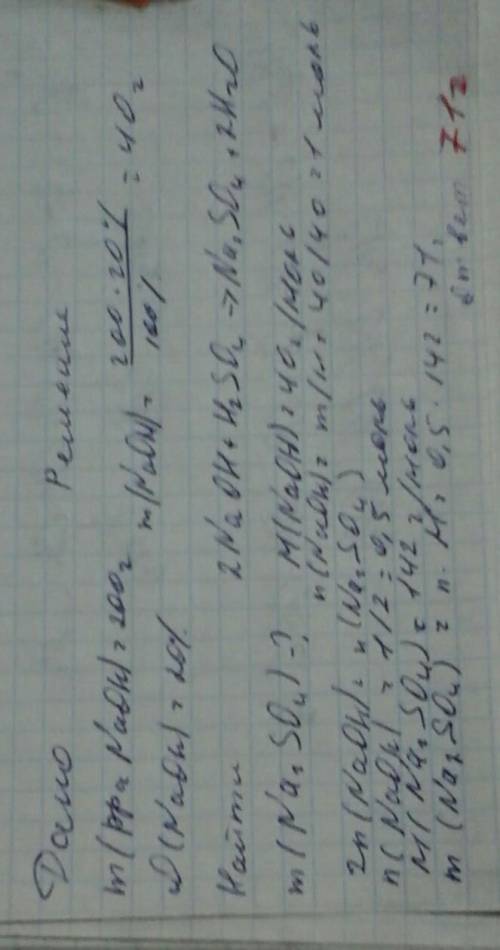 Дано Решение
m(р-ра NaOH)=200г m(NaOH)= 200·20% / 100% = 40г
ω(NaOH)=20%
Найти 2NaOH+H₂SO₄→Na₂SO₄+2H₂O
m(Na₂SO₄)-? M(NaOH)=40г/моль
n(NaOH)=m/M=40/40=1 моль
2n(NaOH)=n(Na₂SO₄)
n(NaOH)=1/2=0,5 моль
M(Na₂SO₄)=142г/моль
m(Na₂SO₄)=n·M=0,5·142=71г
Ответ 71г